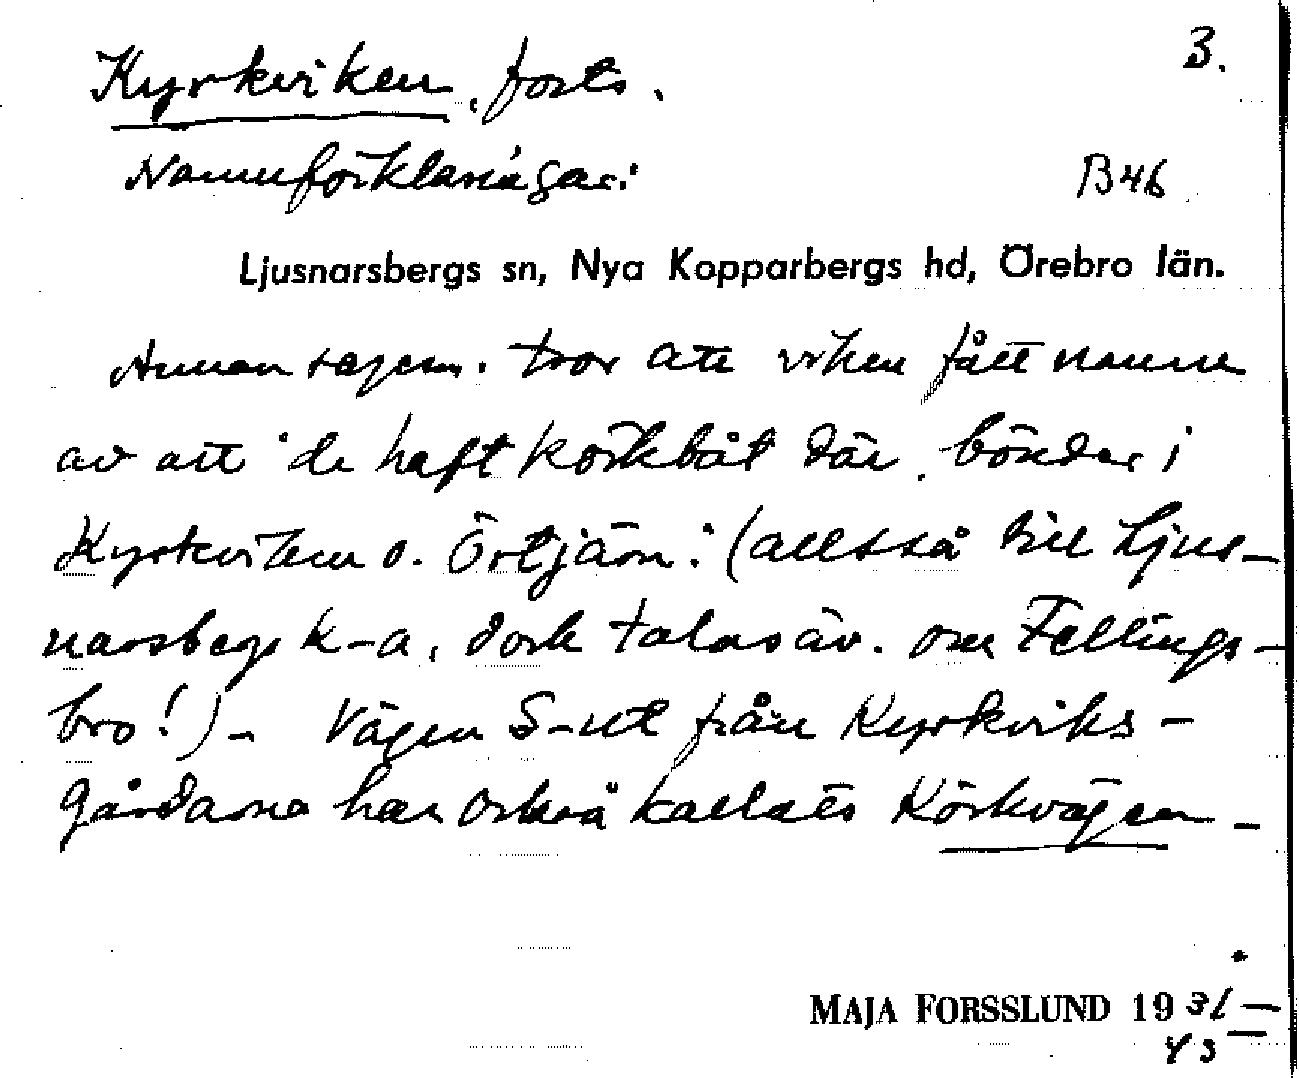 3.
Kyrkviken, forts.
Namnförklaringar:
B46
Ljusnarsbergs sn, Nya Kopparbergs hd, Örebro län.
Annan sagesm. tror att viken fått namn
av att de haft körkbåt där, bönder i
Kyrkviken o. Örtjärn: (alltså till Ljus-
narsbergs k-a, dock talas äv. om Fellings-
bro!) - Vägen S-ut från Kyrkviks-
gårdarna har också kallats Körkvägen -
MAJA FORSSLUND 1931-
43